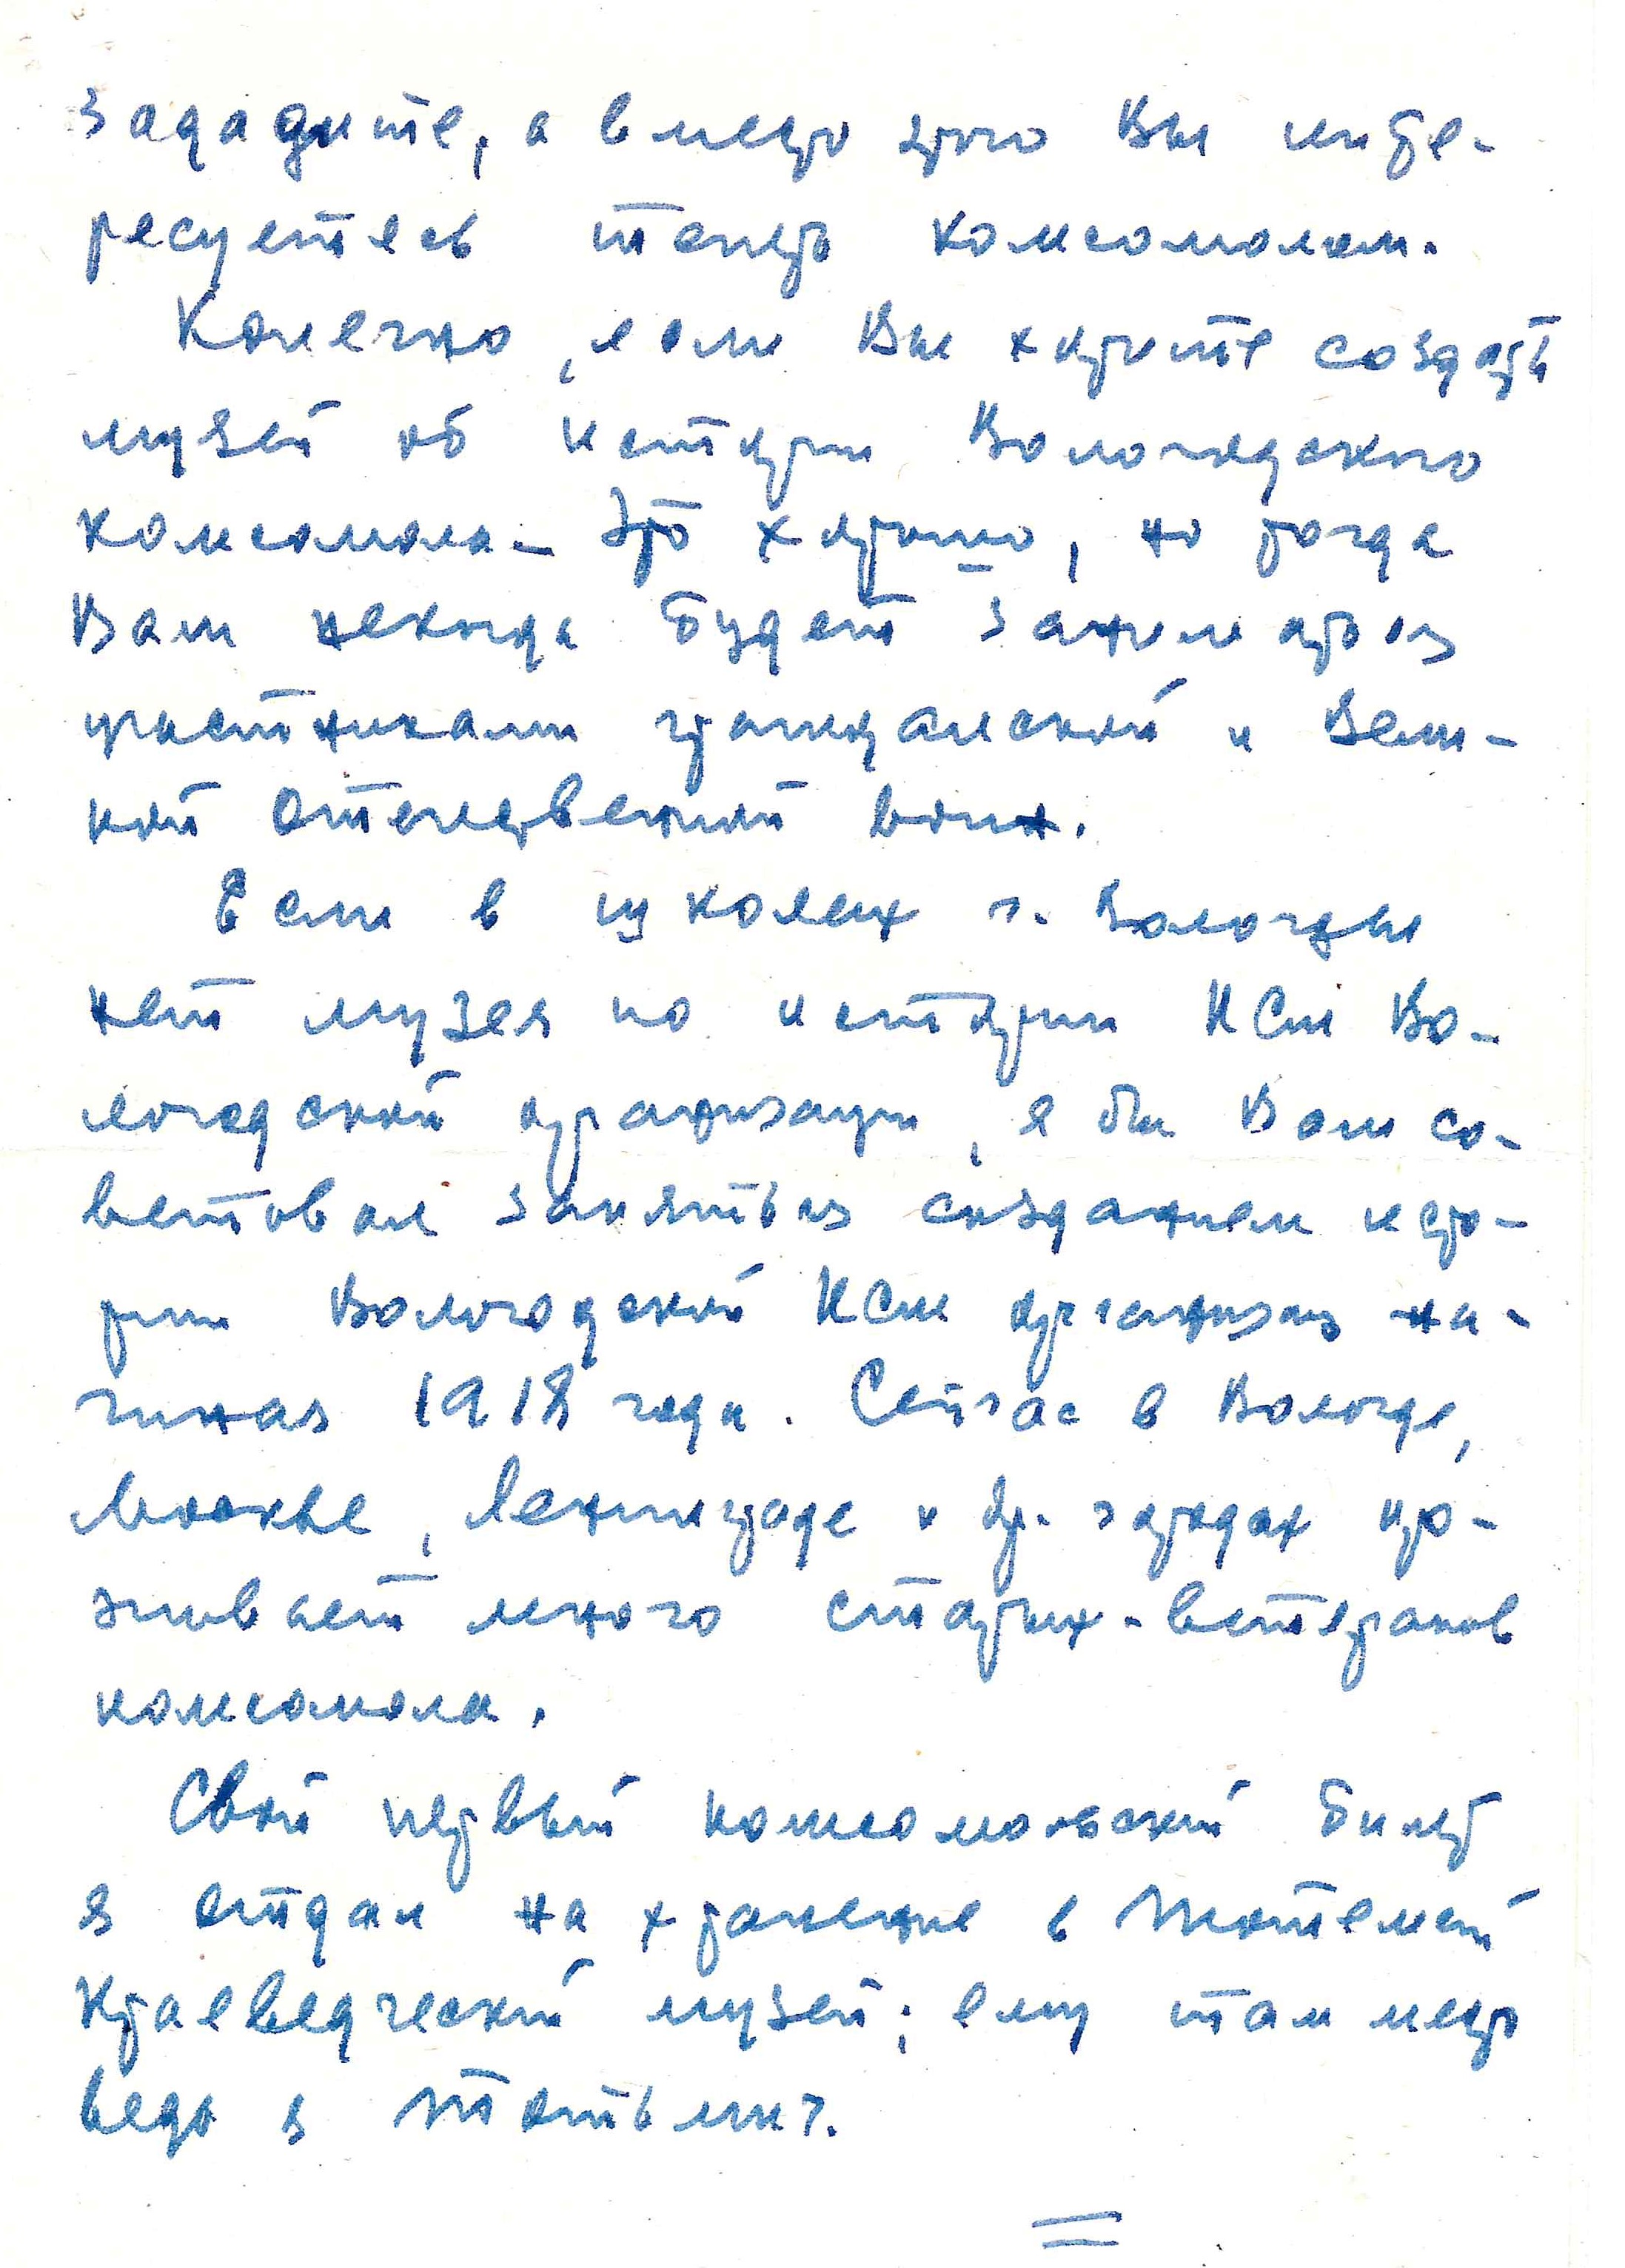 зададите, а вместо этого Вы инте-
ресуетесь только комсомолом.
Конечно, если Вы хотите создать
музей об истории Вологодского
комсомола - Это хорошо, но тогда
Вам некогда будет заниматься
участниками гражданской и Вели-
кой Отечественной войн.
Если в школах г. Вологды
нет музея по истории КСМ Во-
логодской организации, я бы Вам со-
ветовал заняться созданием исто-
рии Вологодской КСМ организац на-
чиная 1918 года. Сейчас в Вологде,
Москве, Ленинграде и др. городах про-
живает много старых-ветеранов
комсомола.
Свой первый комсомольский билет
я отдал на хранение в Тотемский
Краеведческий музей; ему там место
ведь я Тотьмич.